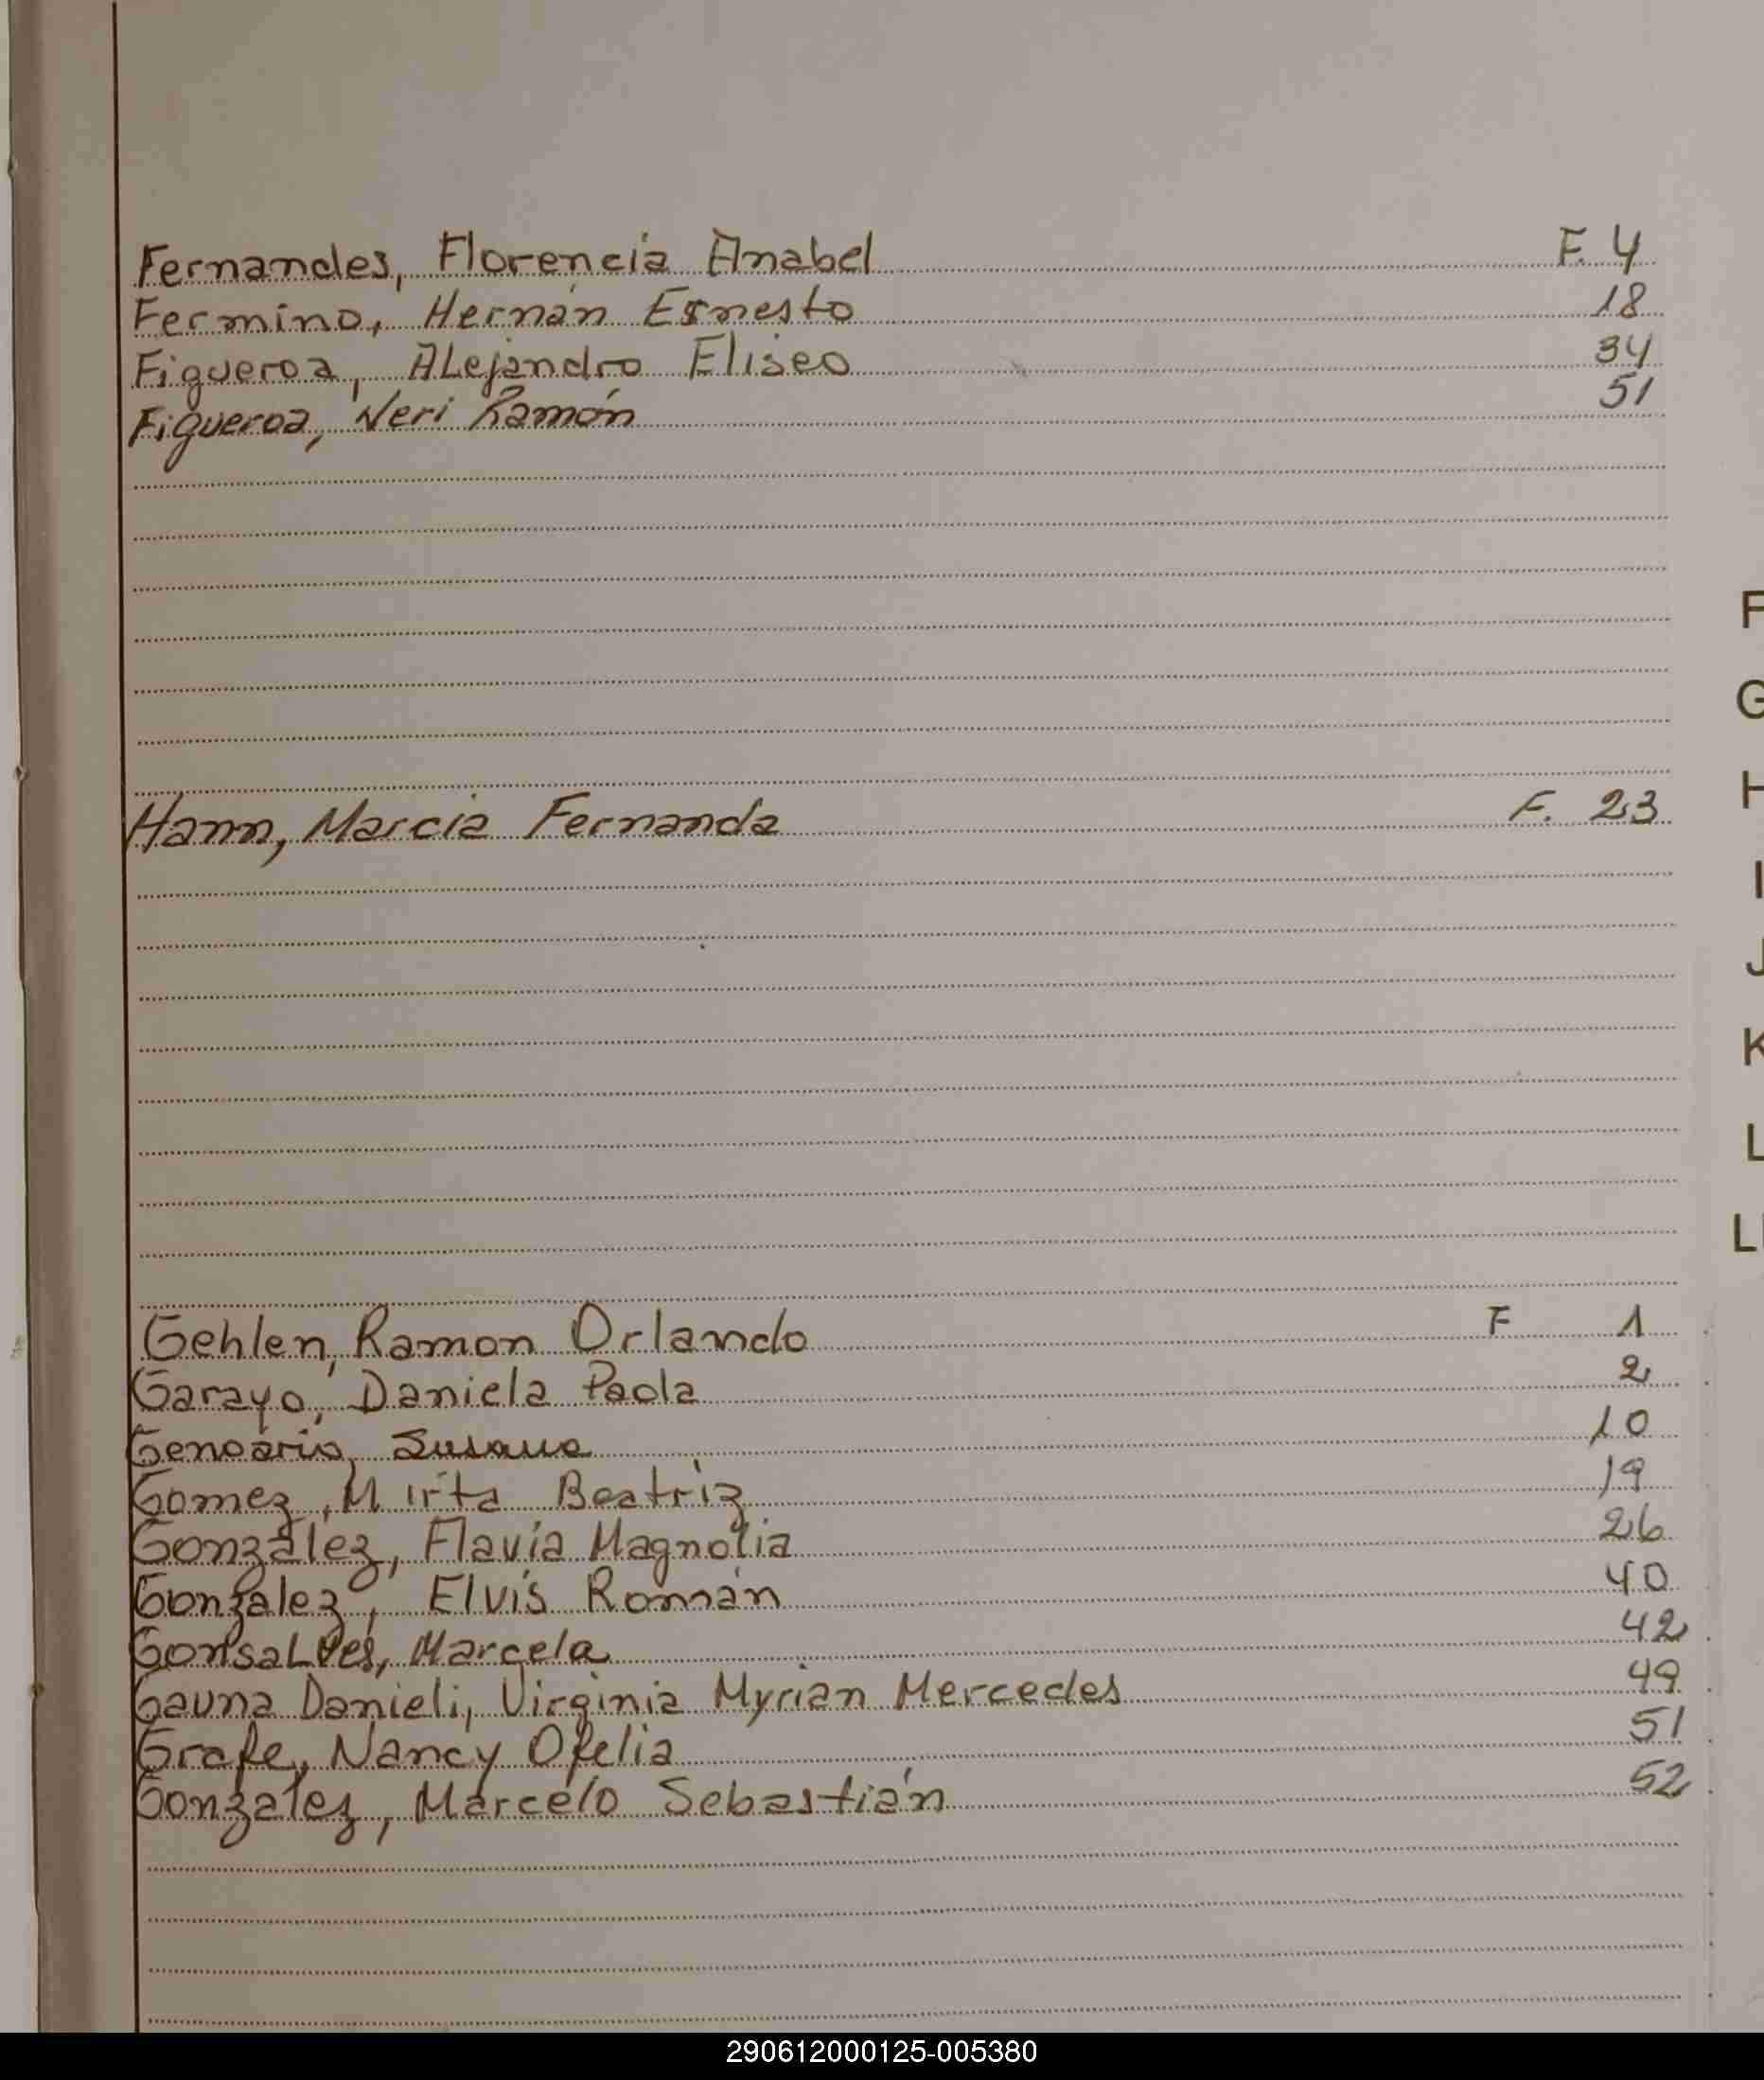 Fernandes, Florencia Anabel F. 4
Fermino, Hernán Ernesto 18
Figueroa, ALejandro Eliseo 34
Figueroa, Neri Ramón 51
F
G
Hann, Marcia Fernanda F. 23
H
I
J
K
L
Ll
Gehlen, Ramon Orlando F 1
Garayo, Daniela Paola 2
Genoario, Susana 10
Gomez, Mirta Beatriz 19
González, Flavia Magnolia 26
Gonzalez, Elvis Román 40
GonsaLves, Marcela 42
Gauna Danieli, Virginia Myrian Mercedes 49
Grafe, Nancy Ofelia 51
Gonzalez, Marcelo Sebastián 52
290612000125-005380